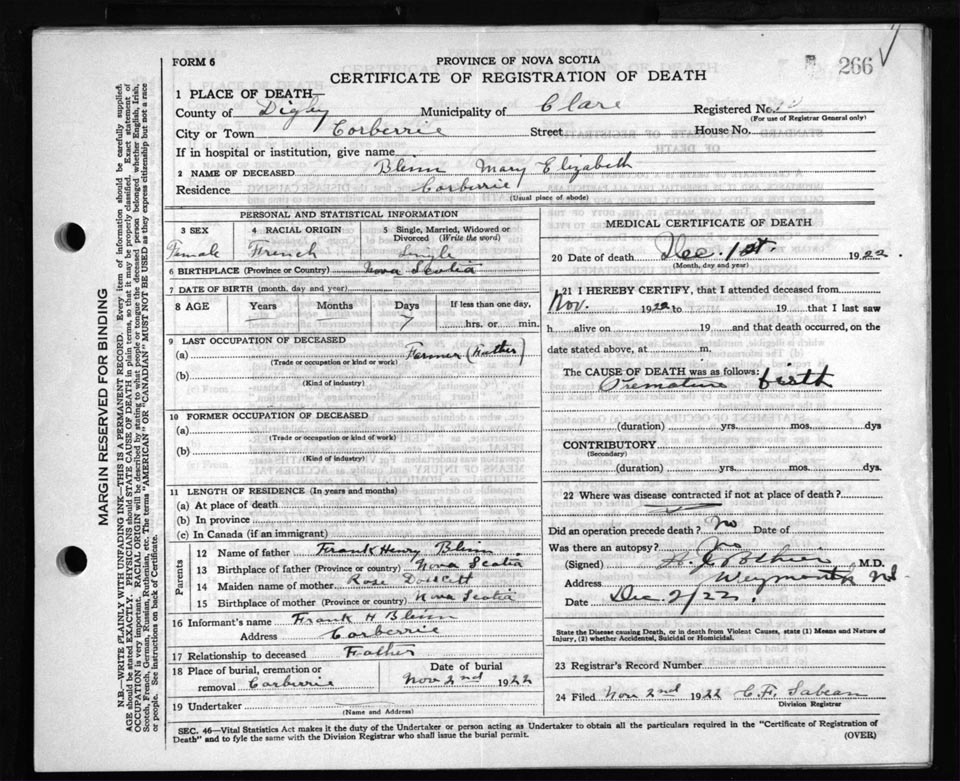 FORM 6
PROVINCE OF NOVA SCOTIA
266
CERTIFICATE OF REGISTRATION OF DEATH
1 PLACE OF DEATH—
County of Digby Municipality of Clare Registered No.
(For use of Registrar General only)
City or Town Corberrie Street House No.
If in hospital or institution, give name
2 NAME OF DECEASED Blinn Mary Elizabeth
Residence Corberrie
(Usual place of abode)
PERSONAL AND STATISTICAL INFORMATION
3 SEX 4 RACIAL ORIGIN 5 Single, Married, Widowed or Divorced (Write the word)
Female French Single
6 BIRTHPLACE (Province or Country) Nova Scotia
7 DATE OF BIRTH (month, day and year)
8 AGE Years Months Days If less than one day,
— — 7 hrs. or min.
9 LAST OCCUPATION OF DECEASED
(a) Farmer (Father)
(Trade or occupation or kind or work)
(b)
(Kind of industry)
10 FORMER OCCUPATION OF DECEASED
(a)
(Trade or occupation or kind of work)
(b)
(Kind of industry)
11 LENGTH OF RESIDENCE (In years and months)
(a) At place of death
(b) In province
(c) In Canada (if an immigrant)
Parents
12 Name of father Frank Henry Blinn
13 Birthplace of father (Province or country) Nova Scotia
14 Maiden name of mother Rose Doucett
15 Birthplace of mother (Province or country) Nova Scotia
16 Informant's name Frank H Blinn
Address Corberrie
17 Relationship to deceased Father
18 Place of burial, cremation or removal Corberrie Date of burial Nov 2nd 1922
19 Undertaker
(Name and Address)
MEDICAL CERTIFICATE OF DEATH
20 Date of death Dec. 1st. 1922.
(Month, day and year)
21 I HEREBY CERTIFY, that I attended deceased from
Nov. 1922 to 19 that I last saw
h alive on 19 and that death occurred, on the
date stated above, at m.
The CAUSE OF DEATH was as follows:
Premature birth
(duration) yrs. mos. days
CONTRIBUTORY
(Secondary)
(duration) yrs. mos. dys.
22 Where was disease contracted if not at place of death?
Did an operation precede death? No Date of
Was there an autopsy? No
(Signed) M.D.
Address Weymouth NS
Date Dec. 2/22.
State the Disease causing Death, or in death from Violent Causes, state (1) Means and Nature of
Injury, (2) whether Accidental, Suicidal or Homicidal.
23 Registrar's Record Number
24 Filed Nov 2nd 1922 C. F. Sabean
Division Registrar
SEC. 46—Vital Statistics Act makes it the duty of the Undertaker or person acting as Undertaker to obtain all the particulars required in the "Certificate of Registration of
Death" and to fyle the same with the Division Registrar who shall issue the burial permit. (OVER)
MARGIN RESERVED FOR BINDING
N.B.—WRITE PLAINLY WITH UNFADING INK—THIS IS A PERMANENT RECORD. Every item of information should be carefully supplied.
AGE should be stated EXACTLY. PHYSICIANS should STATE CAUSE OF DEATH in plain terms, so that it may be properly classified. Exact statement of
OCCUPATION is very important. RACIAL ORIGIN will be described by stating to what people or tongue the deceased person belonged whether English, Irish,
Scotch, French, German, Russian, Ruthenian, etc. The terms "AMERICAN" OR "CANADIAN" MUST NOT BE USED as they express citizenship but not a race
or people. See instructions on back of Certificate.